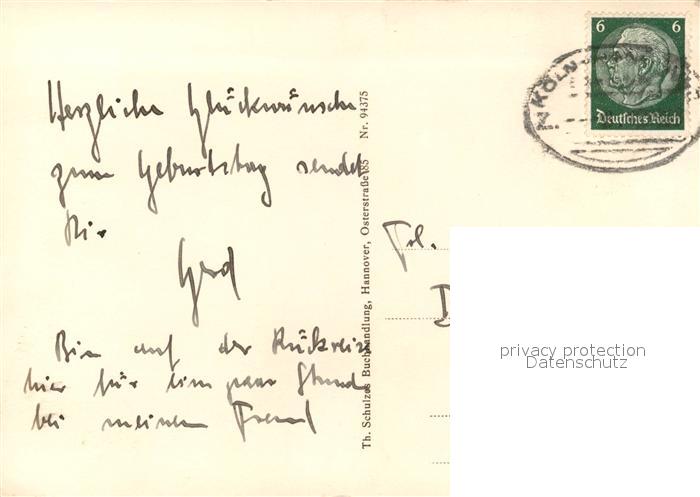 Herzliche Glückwünsche
zum Geburtstag sendet
Dir
Gerd
Bin auf der Rückreise
hier für ein paar Stunden
bei meinem Freund
Th. Schulzes Buchhandlung, Hannover, Osterstraße 85 Nr. 94375
6 6
Deutsches Reich
KÖLN
Frl.
D
privacy protection
Datenschutz